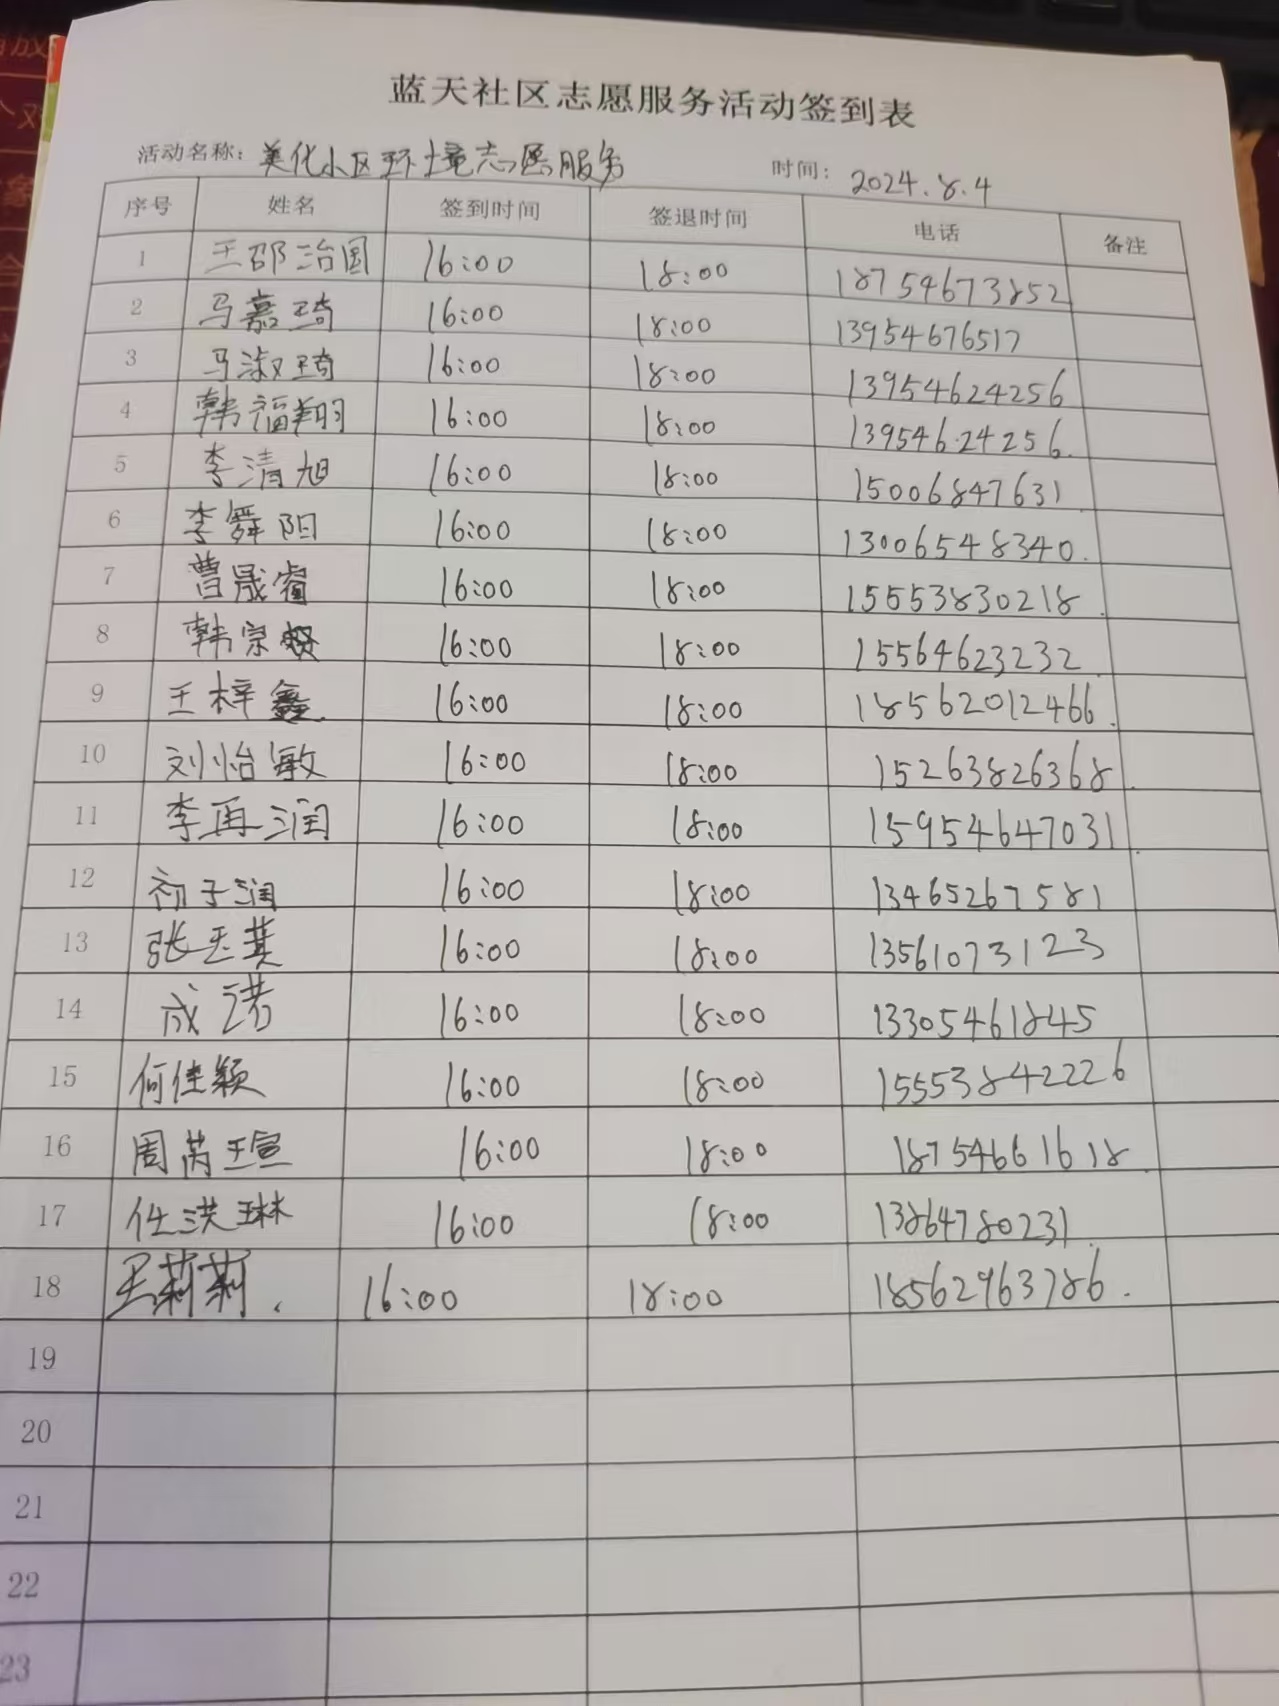 蓝天社区志愿服务活动签到表
活动名称：美化小区环境志愿服务 时间：2024.8.4
序号 姓名 签到时间 签退时间 电话 备注
1 王邵治国 16:00 18:00 18754673852
2 马嘉琦 16:00 18:00 13954676517
3 马淑琦 16:00 18:00 13954624256
4 韩福翔 16:00 18:00 13954624256.
5 李清旭 16:00 18:00 15006847631
6 李舜阳 16:00 18:00 13006548340.
7 曹晟睿 16:00 18:00 15553830218.
8 韩宗 16:00 18:00 15564623232
9 王梓鑫. 16:00 18:00 18562012466.
10 刘怡敏 16:00 18:00 15263826368.
11 李再润 16:00 18:00 15954647031.
12 初子润 16:00 18:00 13465267581
13 张玉 16:00 18:00 13561073123
14 成诺 16:00 18:00 13305461845
15 何佳颖 16:00 18:00 15553842226
16 周芮瑄 16:00 18:00 18754661618.
17 任洪琳 16:00 18:00 13864780231.
18 王莉莉. 16:00 18:00 18562963786.
19
20
21
22
23